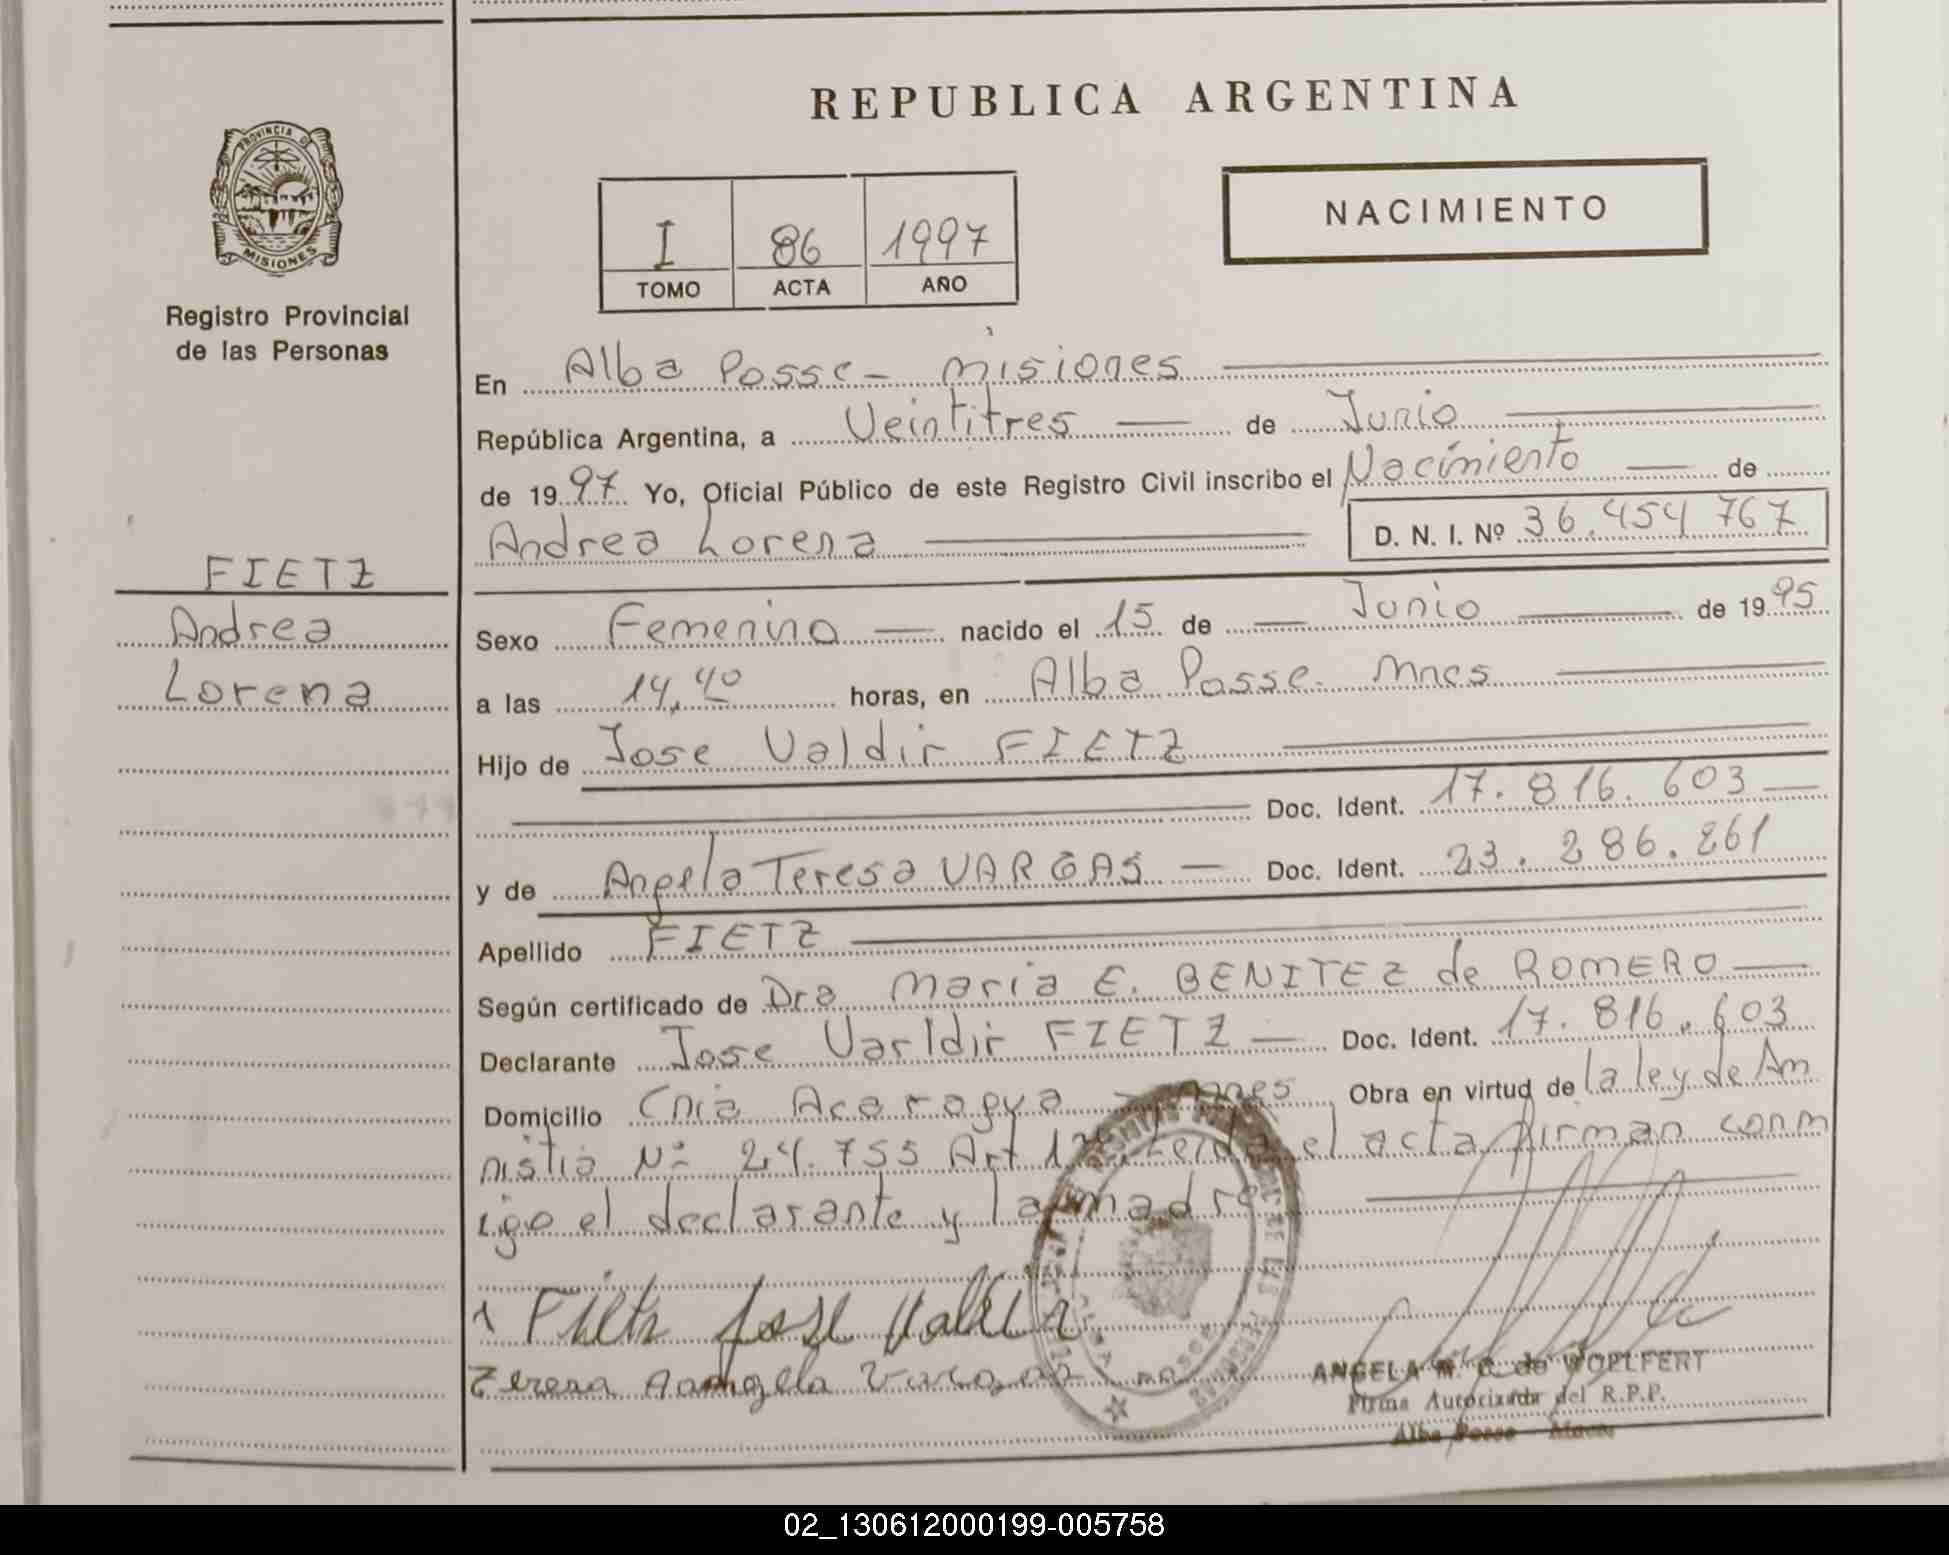 REPUBLICA ARGENTINA
PROVINCIA DE
MISIONES
Registro Provincial
de las Personas
NACIMIENTO
I 86 1997
TOMO ACTA AÑO
En Alba Posse - Misiones
República Argentina, a Veintitres de Junio
de 1997 Yo, Oficial Público de este Registro Civil inscribo el Nacimiento de
Andrea Lorena D. N. I. Nº 36.454 767
FIETZ
Andrea
Lorena
Sexo Femenino nacido el 15 de Junio de 1995
a las 14,40 horas, en Alba Posse. Mnes
Hijo de Jose Valdir FIETZ
Doc. Ident. 17.816.603
y de Angela Teresa VARGAS Doc. Ident. 23.286.261
Apellido FIETZ
Según certificado de Dra Maria E. BENITEZ de ROMERO
Declarante Jose Varldir FIETZ Doc. Ident. 17.816.603
Domicilio Cnia Acaragua - Mnes Obra en virtud de la ley de Am
nistia Nº 24.755 Art 1º Leida el acta firman conm
igo el declarante y la madre
Fietz Jose Valdir
Teresa Aangela Vargas
ANGELA M. C. de WOELFERT
Firma Autorizada del R.P.P.
Alba Posse - Mnes
02_130612000199-005758